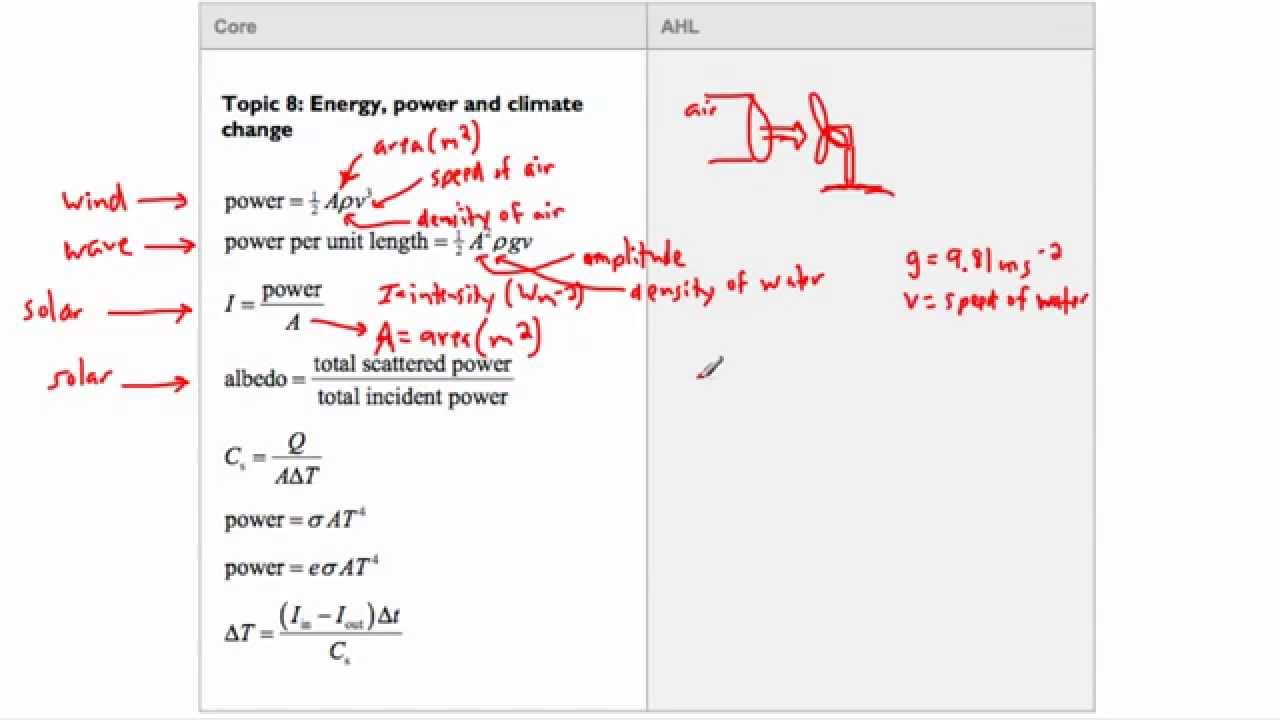 Core
AHL
Topic 8: Energy, power and climate
change
area (m²)
speed of air
air
wind → power = ½ Aρv³
density of air
wave → power per unit length = ½ A²ρgv
amplitude
density of water
g = 9.81 ms⁻²
v = speed of water
solar → I = power / A
I = intensity (Wm⁻²)
A = area (m²)
solar → albedo = total scattered power / total incident power
Cₛ = Q / AΔT
power = σAT⁴
power = eσAT⁴
ΔT = (I_in − I_out)Δt / Cₛ